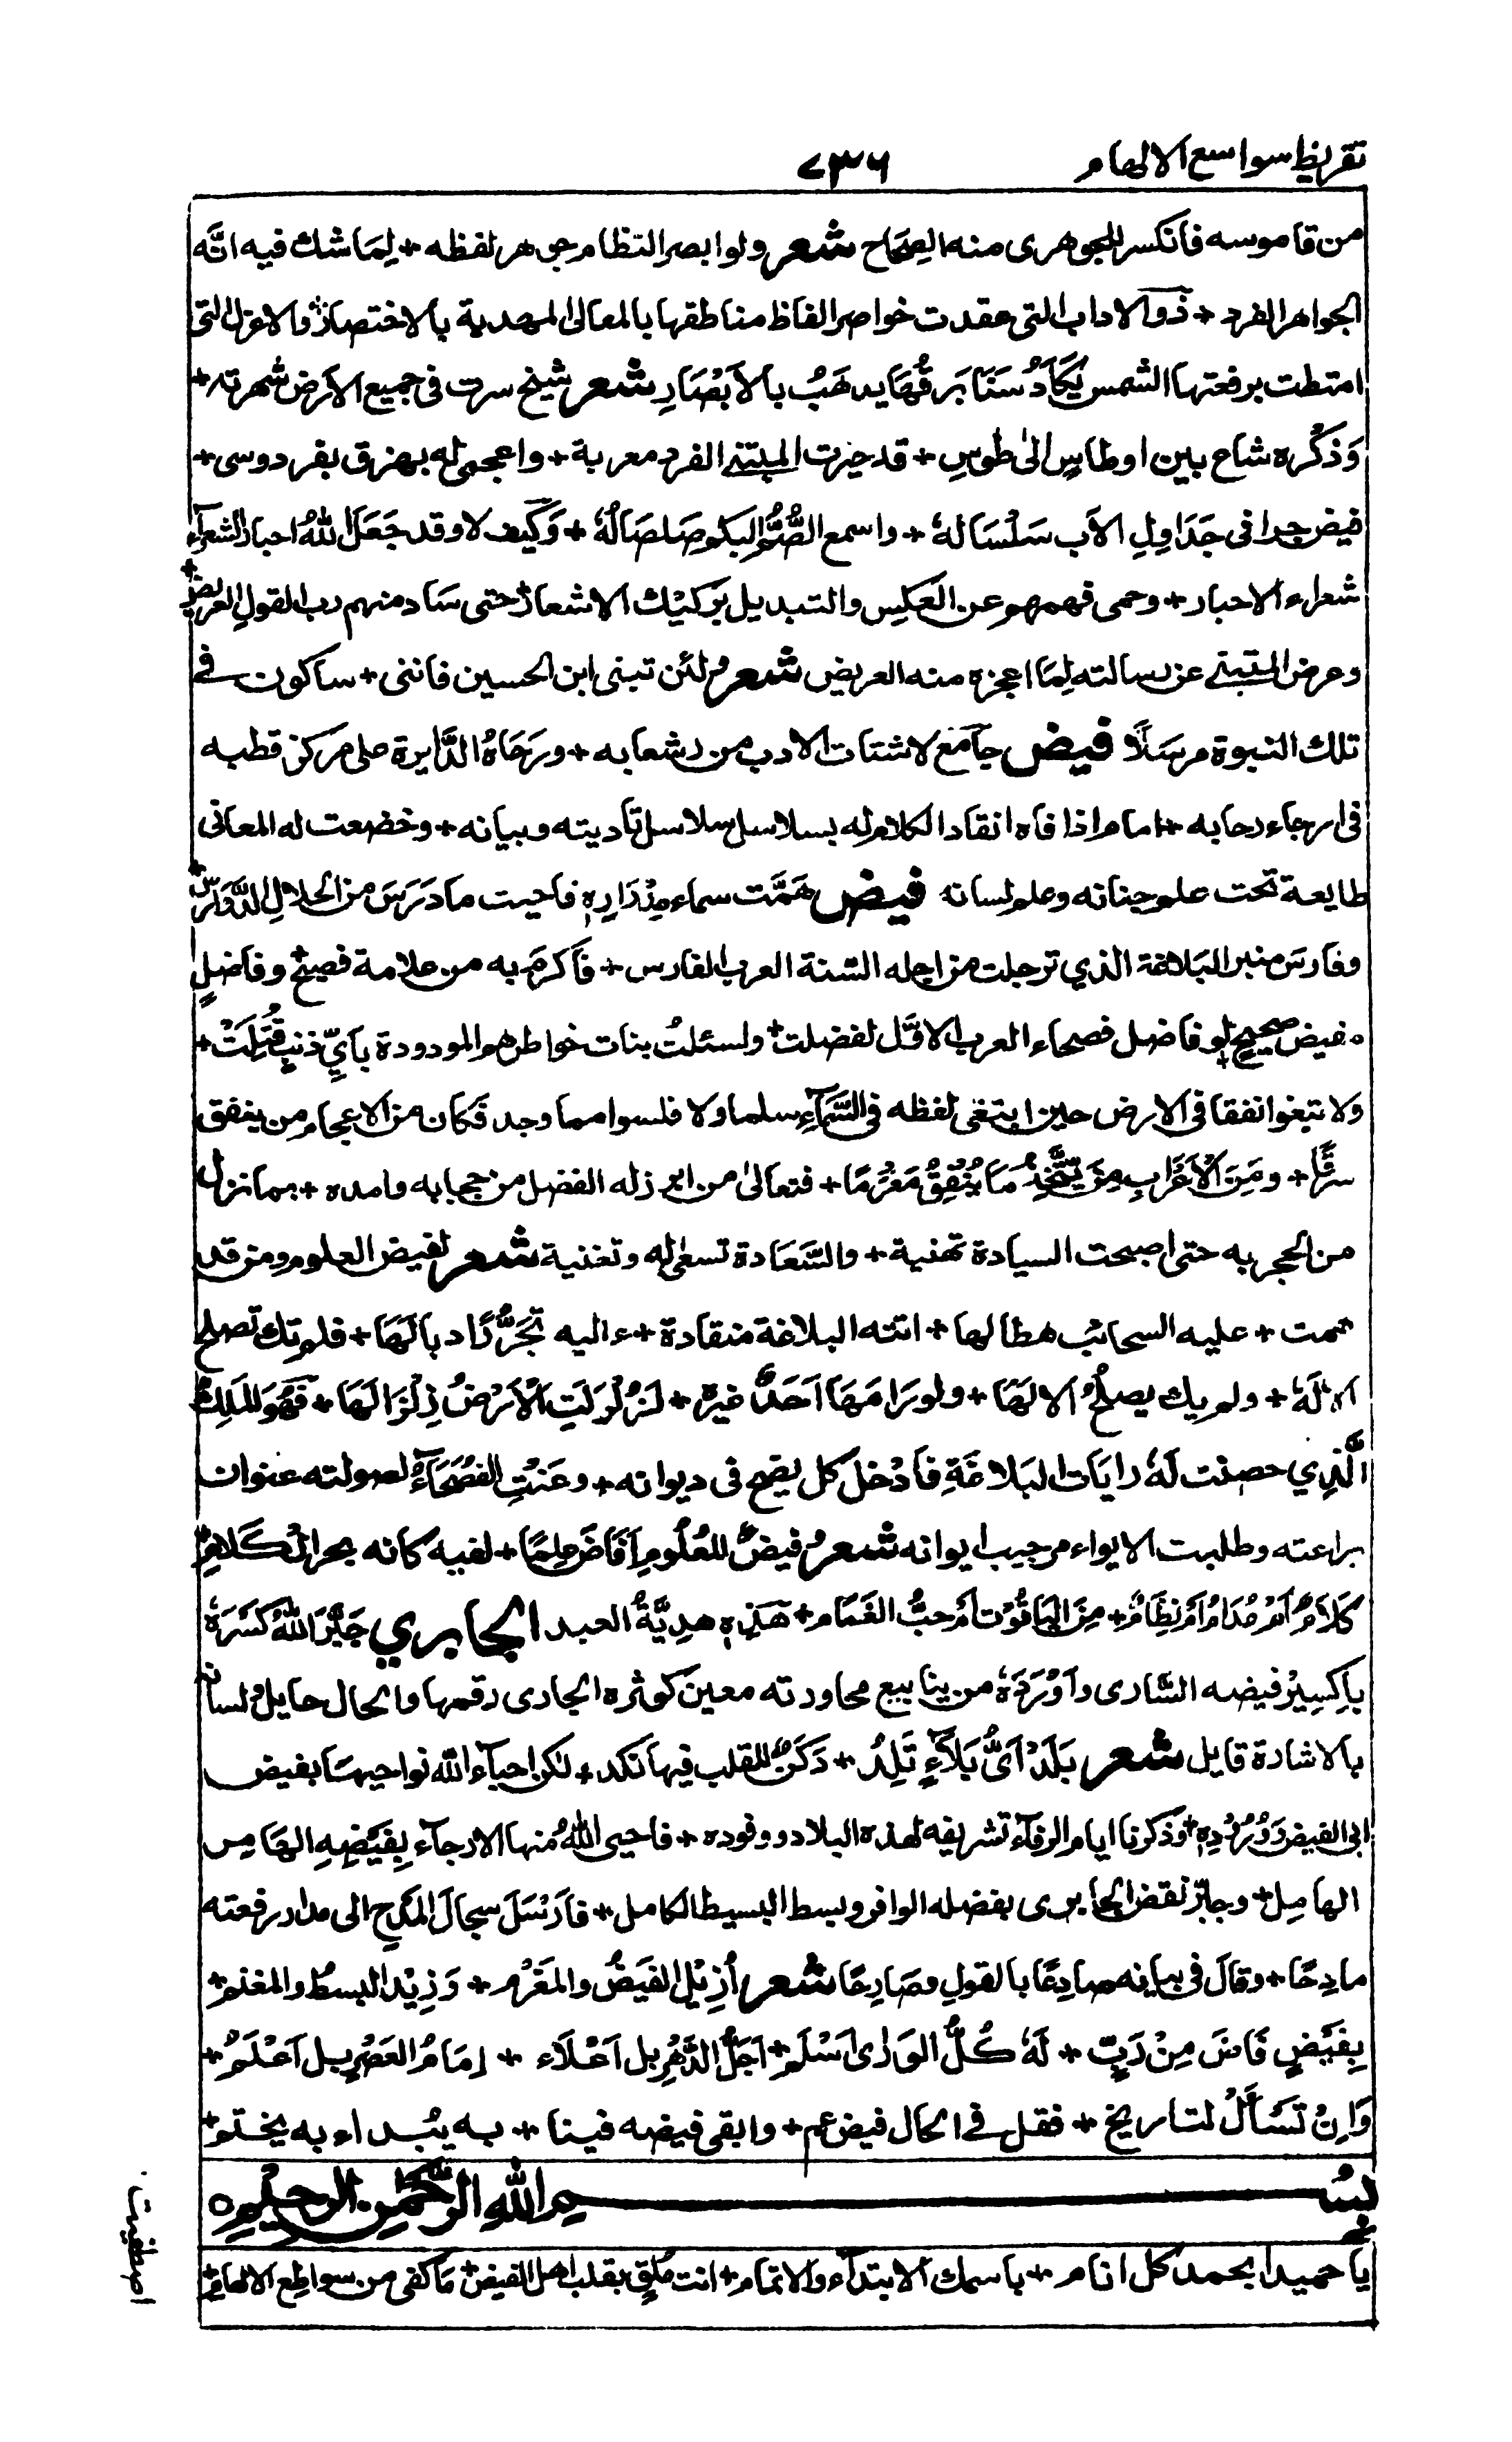 تقريظ سواسع الالهام
٧٣٦
من قاموسه فانكسر للجوهرى منه الصِحَاح شعر ولوابصر النظام جوهر لفظه + لِمَا شك فيه انَّه
الجواهر الفرد + ذو الاداب التى عقدت خواصر الفاظ مناطقها بالمعالى المهدية بالاختصار + والاعزل التى
امتطت برفعتها الشمس يَكَادُ سَنَا بَرقُهَا يدهَبُ بالاَبْصَارِ شعر شيخ سرت فى جميع الارض شهرته +
وَذكْره شاح بين اوطاسٍ الىٰ طوسِ + قد حيرت المبتنى الفرد معربة + واعجمى له بهزق بفردوسى +
فيض جرا فى جَدَاوِلِ الاَب سَلْسَالهٗ + واسمع الصُّمُّ البكم صَلصَالُهٗ + وَكَيف لا وقد جَعَلَ اللّٰهُ احبار الشعرآء
شعراء الاحبار + وحمى فهمهم عن العَكِس والتبديل بَركيْك الاشعار + حتى سَاد منهم رب القول العريض +
وعرض المتبنى عن رسالته لِمَا اعجزه منه العريض شعر لئن تبنى ابن الحسين فاننى + ساكون فى
تلك النبوة مرسَلًا فيض جآمع لاشتات الادب من شعابه + ورَحَاهُ الدَّايرة على مركز قطبه
فى ارجاء رحابه + امام اذا فاه انقاد الكلام له بسلاسل سلاسل تأديته وبيانه + وخضعت له المعانى
طايعة تحت علم جنانه وعلم لسانه فيض هَمَّت سماء مِدْرَارِهٖ فاحيت مادَرَسَ من الجلال
وفارسَ منبر البَلاغة الذي ترجلت من اجله السّنة العرب الفارس + فَاكرمَ به من علامة فصيحٍ وفاضلٍ
مفيض صحيحٍ لو فاضل فصحاء العرب الاقَّل لفضلت + ولسئلتُ بنات خواطرهم المودودة بآىِّ ذنبٍ قُتِلَتْ +
ولا تبغوا نفقا فى الارض حين ابتغى لفظه فى السَّمآءِ سلما ولا فلسوا مما وجد فكان من الاعجام من ينفق
سرقًا + ومَِنَ الْاَعْرَابِ مِنَ يَتَّخِذُ مَا يُنْفِقُ مَغْرَمًا + فتعالىٰ من ابرزله الفضل من حجابه وامده + بما نزل
من الحجر به حتى اصبحت السيادة تهنية + والسَّعَادة تسعىٰ له وتغنية شعر لفيض العلوم ومن قد
همت + عليه السحائب هطالها + اتته البلاغة منقادة + ءاليه تجَرُّرًا دبالَهَا + فلم تك تصلح
الا لَهٗ + ولم يك يصلحُ الا لهَا + ولو رَامَهَا اَحَدٌ غيره + لَزُلْزِلَتِ الْاَرْضُ زِلْزَالَهَا + فهُوَ المَلِكُ
الَّذِي حصنت لَهٗ رايَات البَلاغَةِ فَادْخلَ كل يضح فى ديوانه + وعَنْتِ الفُصَحَآءُ لصولته عنوان
براعته وطلبت الايواء من جيب ايوانه شعر فيضٌ للعُلُومِ اَفَاضَ عِلمًا + لفيه كانه بحر الكَلامِ +
كَلَامٌ اَمْ مُدَامٌ اَمْ نِظَامٌ + مِنَ اليَاقُوْت اَمْ حبُّ الغَمَام + هَذِهٖ هدِيَّةُ العبد الجابري جَبَّرَ اللّٰهُ كَسَرَهٗ
بِاِكسِيْرِ فيضه السَّارى وَاَوْرَدَهٗ من ينابيع محاورته معين كوثره الجارى رقمها والحال حايل ولسانه
بالاشارة قايل شعر بَلَدٌ اَىُّ بَلَآءٍ تَلِدُ + دَكَنٌ للقلب فيها نكد + لٰكن احيآء اللّٰه نواحيهَا بفيض
ابى الفيض وَوُرُوْدِهٖ + وذكرنا ايام الرفآء تشريفه لهذه البلاد ووفوده + فاحيى اللّٰهُ منها الارجآء بِفَيْضِهِ الهَامِر
الهامِل + وجابَر نقض الجابرى بفضله الوافر وبسط البسيط الكامل + فاَرْسَلَ سِجَالَ المَدح الى مدار رفعته
مادِحًا + وقال فى بيانه صادِعًا بالقولِ وصَادِحًا شعر اُزِيْلُ الفَيَضُ والمَغْرَم + وَزِيْدَ البسطُ والمغنم +
بِفَيْضٍ فَاضَ مِنْ رَبٍّ + لَهٗ كُلُّ الوَرٰى اَسْلَم + اَجَلُّ الدَّهْرِ بل اَعْلَاء + اِمَامُ العَصْرِ بل اَعْلَمُ +
وَاِنْ تَسْأَلْ لتاريخ + فقل فى الحال فيض عم + وابقى فيضه فينا + به يُبْداء به يختم +
بسم اللّٰه الرَّحمٰن الرحيم ٥
يا حميدا بحمد كل انام + باسمك الابتدآء والاتمام + انت مُلقٍ بقلب اهل الفيض + مَا كفى من سواطع الالهام +